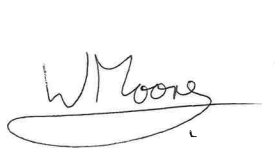 W Moore